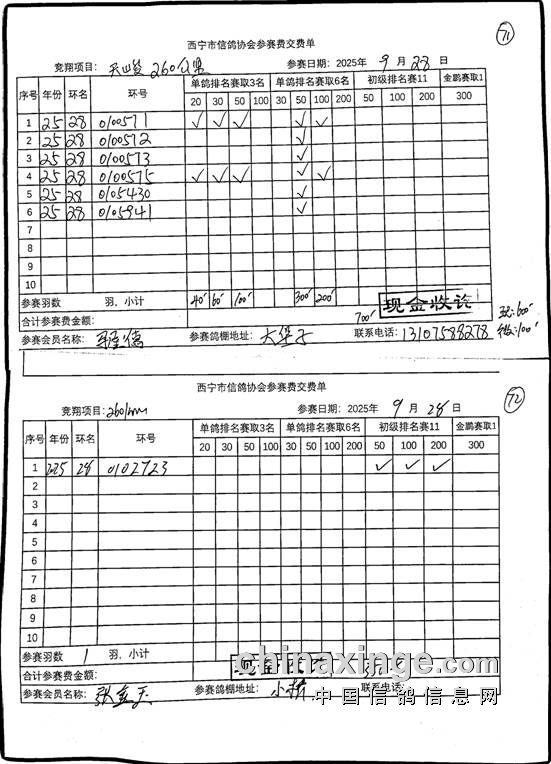 71
西宁市信鸽协会参赛费交费单
竞翔项目: 260公里 参赛日期: 2025年 9 月 28 日
序号 年份 环名 环号 单鸽排名赛取3名 单鸽排名赛取6名 初级排名赛11 金鹏赛取1
20 30 50 100 30 50 100 200 50 100 200 300
1 25 28 0100571 ✓ ✓ ✓ ✓ ✓
2 25 28 0100572 ✓
3 25 28 0100573 ✓
4 25 28 0100575 ✓ ✓ ✓ ✓ ✓
5 25 28 0105430 ✓
6 25 28 0105941 ✓
7
8
9
10
参赛羽数 羽、小计 40 60 100 300 200
合计参赛费金额: 700 现金收讫
现:600
参赛会员名称: 参赛鸽棚地址: 大堡子 联系电话: 13107588278 微:100
72
西宁市信鸽协会参赛费交费单
竞翔项目: 260km 参赛日期: 2025年 9 月 28 日
序号 年份 环名 环号 单鸽排名赛取3名 单鸽排名赛取6名 初级排名赛11 金鹏赛取1
20 30 50 100 30 50 100 200 50 100 200 300
1 225 28 0102723 ✓ ✓ ✓
2
3
4
5
6
7
8
9
10
参赛羽数 1 羽、小计
合计参赛费金额: 现金
chinaxinge.com
参赛会员名称: 参赛鸽棚地址: 小桥 联系电话:
中国信鸽信息网